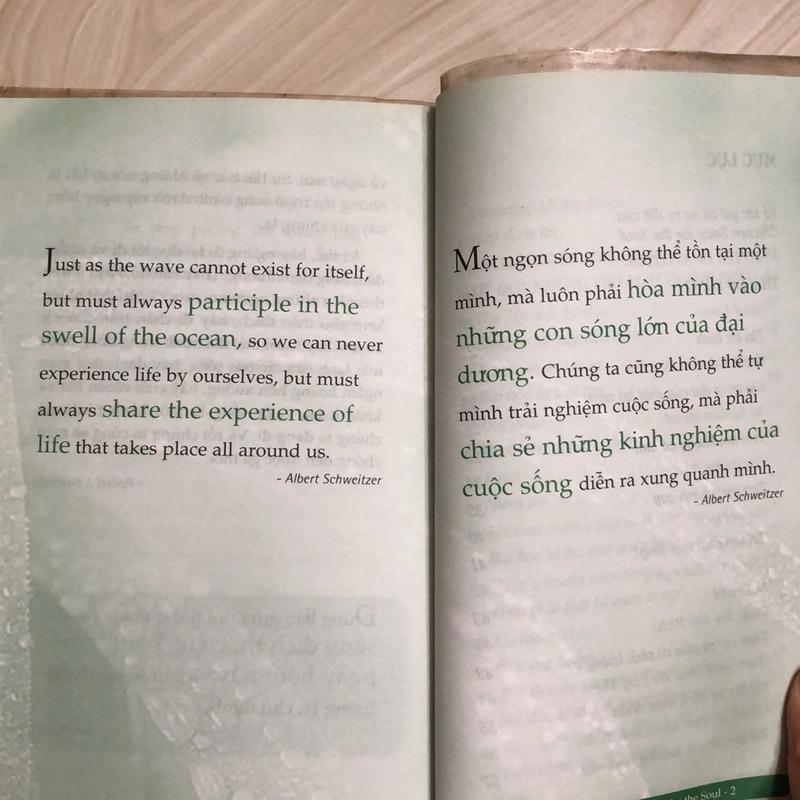 Just as the wave cannot exist for itself,
but must always participle in the
swell of the ocean, so we can never
experience life by ourselves, but must
always share the experience of
life that takes place all around us.
- Albert Schweitzer
Một ngọn sóng không thể tồn tại một
mình, mà luôn phải hòa mình vào
những con sóng lớn của đại
dương. Chúng ta cũng không thể tự
mình trải nghiệm cuộc sống, mà phải
chia sẻ những kinh nghiệm của
cuộc sống diễn ra xung quanh mình.
- Albert Schweitzer
the Soul - 2